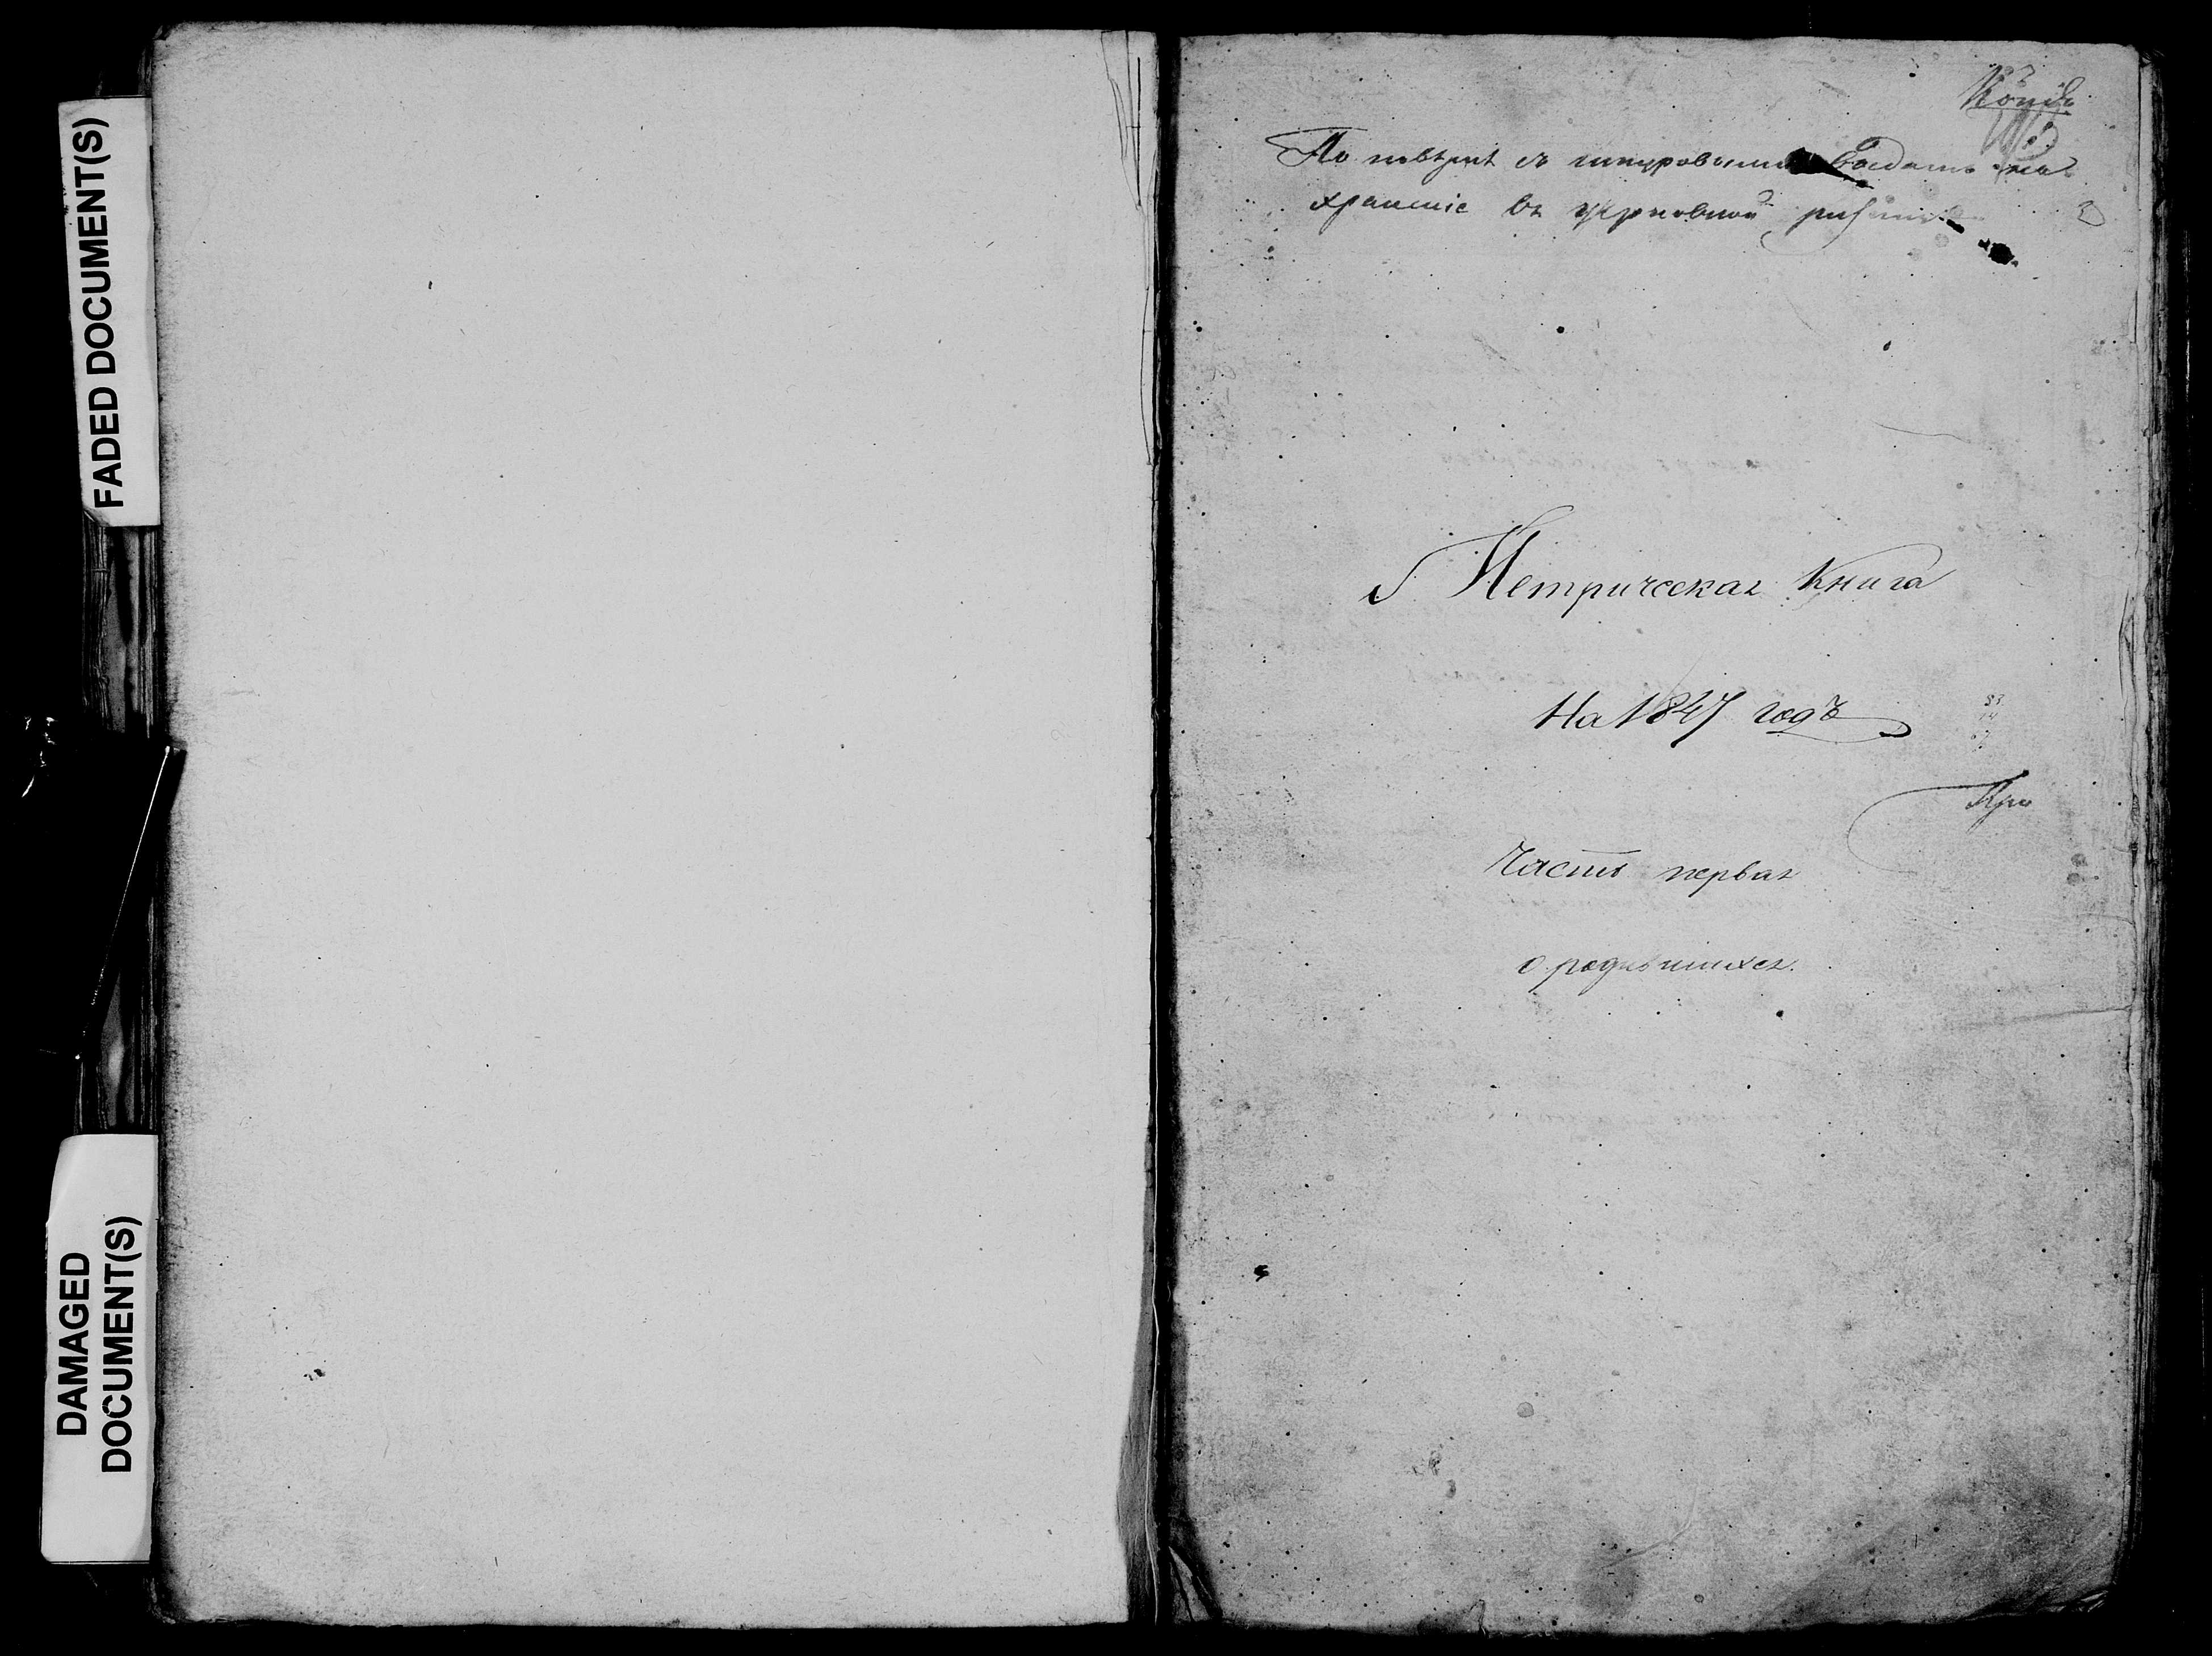 FADED DOCUMENT(S)
DAMAGED
DOCUMENT(S)
По повѣркѣ съ шнуровыми выдать на
храненіе въ церковной ризницѣ
Метрическая Книга
На 1847 годъ
Часть первая
о родившихся.